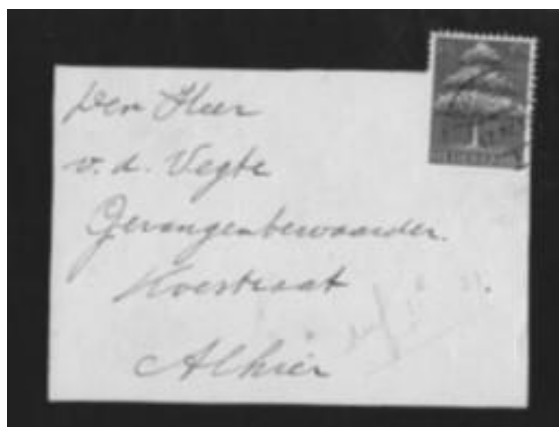 Den Heer
v. d. Vegte
Gevangenbewaarder.
Alhier